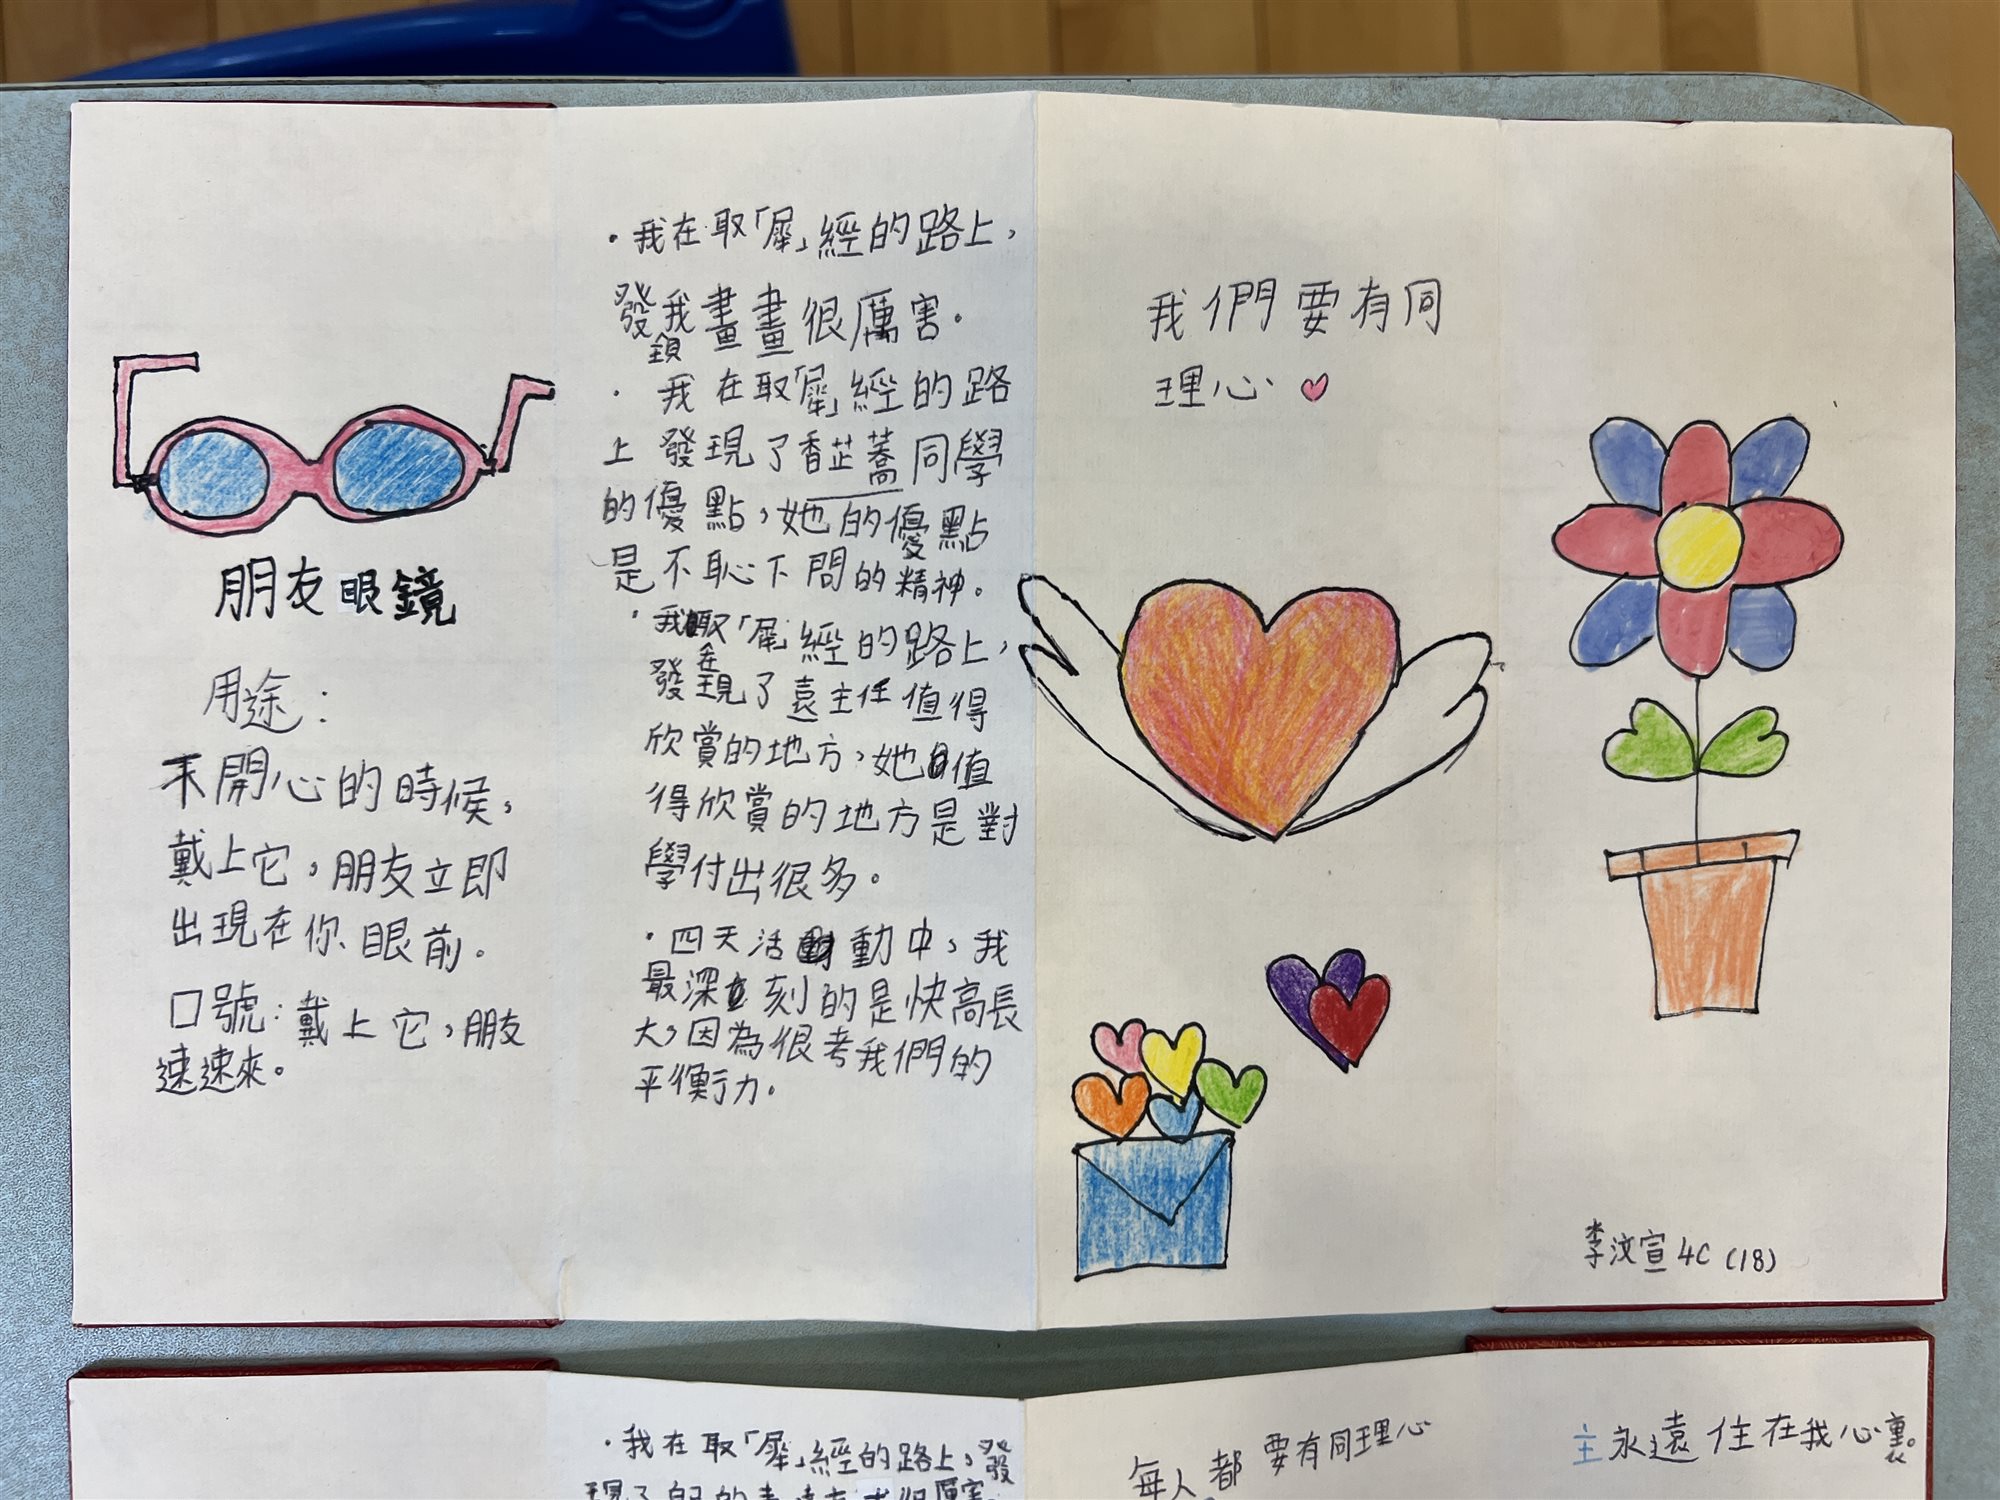 朋友眼鏡
用途：
不開心的時候，
戴上它，朋友立即
出現在你眼前。
口號：戴上它，朋友
速速來。
·我在取「犀」經的路上，
發我畫畫很厲害。
·我在取「犀」經的路
上發現了香芷蕎同學
的優點，她的優點
是不恥下問的精神。
·我取「犀」經的路上，
在
發現了袁主任值得
欣賞的地方，她值
得欣賞的地方是對
學付出很多。
·四天活動中，我
最深刻的是快高長
大，因為很考我們的
平衡力。
我們要有同
理心
李汶宣 4C (18)
·我在取「犀」經的路上，發
每人都要有同理心
主永遠住在我心裏。